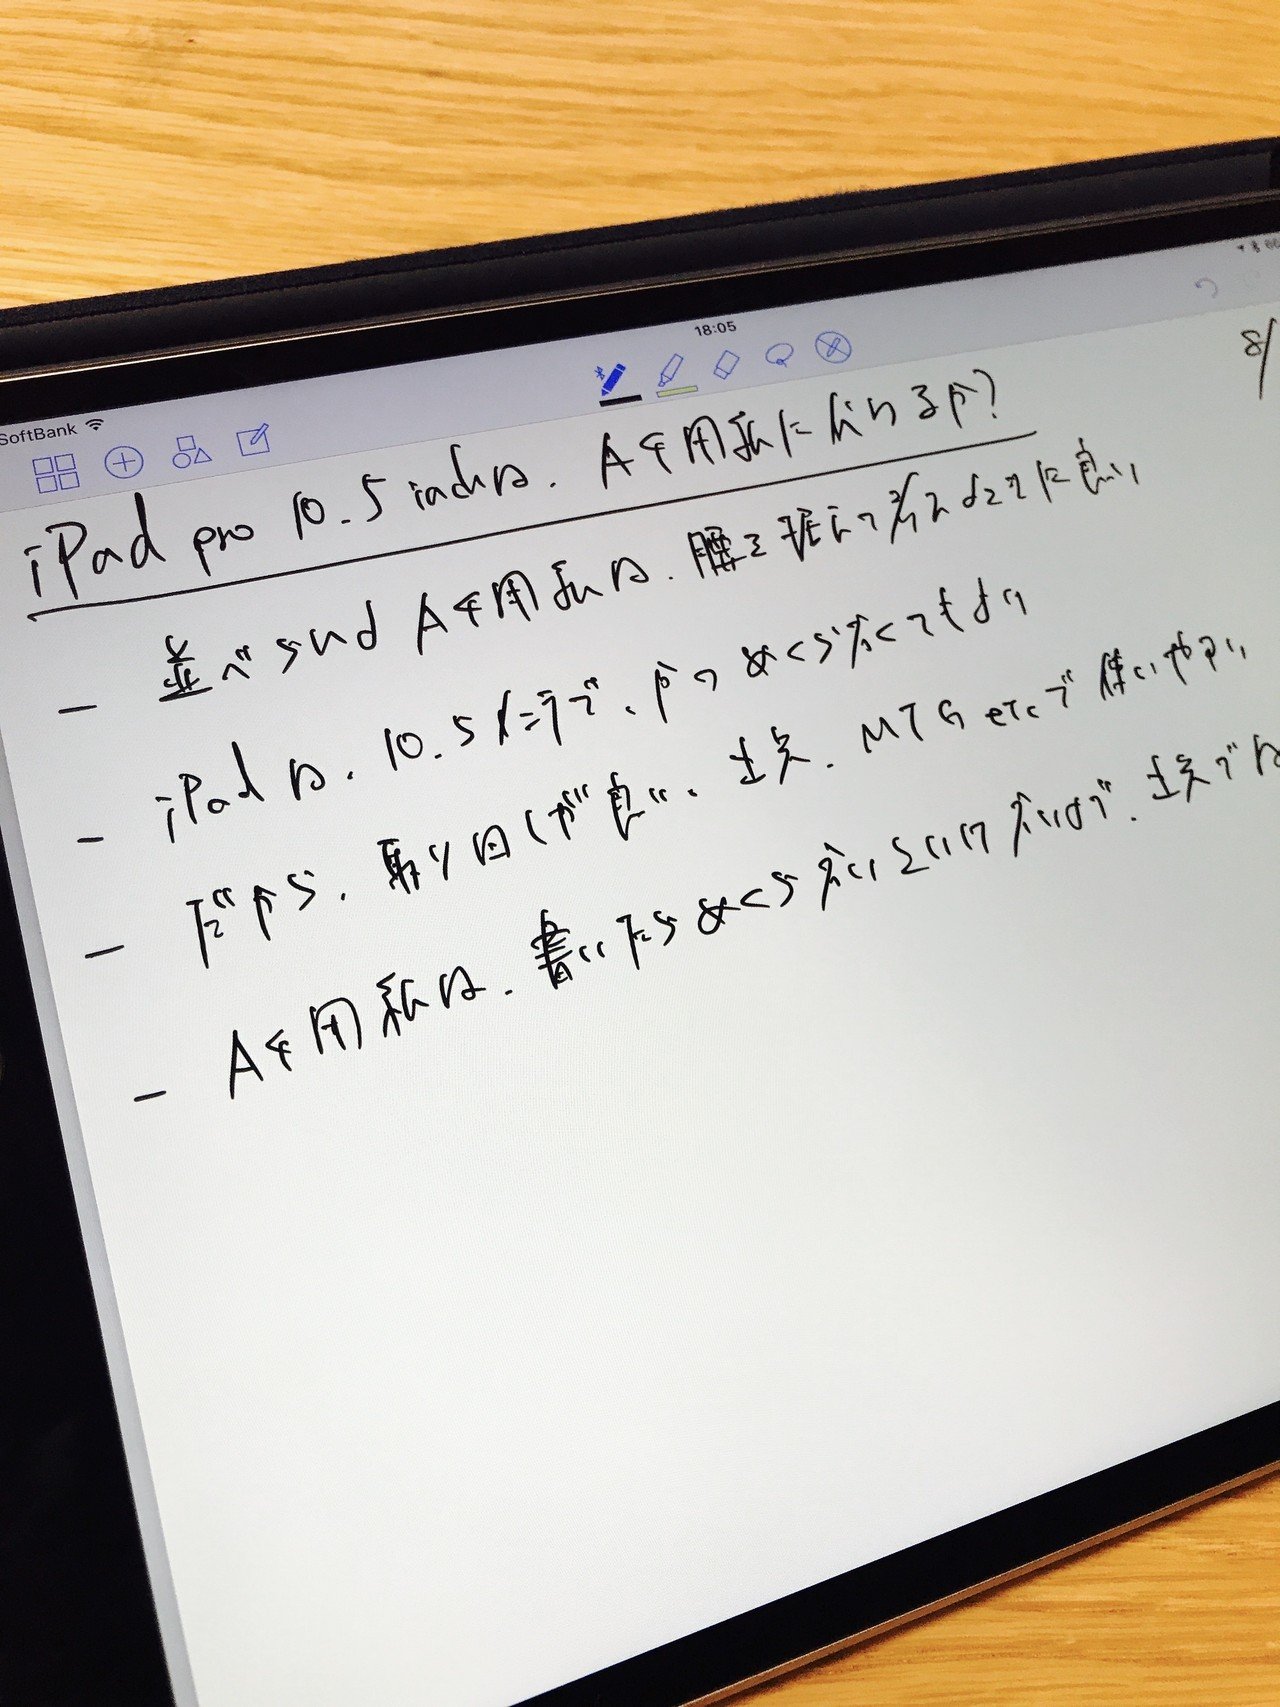 18:05
SoftBank
8/
iPad pro 10.5 inchは、A4用紙に勝るか?
- 並べらればA4用紙は、腰を据えて考えるときに良い
- iPadは、10.5インチで、かつめくらなくてもよい
- だから、取り回しが良い、出先、MTG etcで使いやすい
- A4用紙は、書いたらめくらないといけないので、出先では